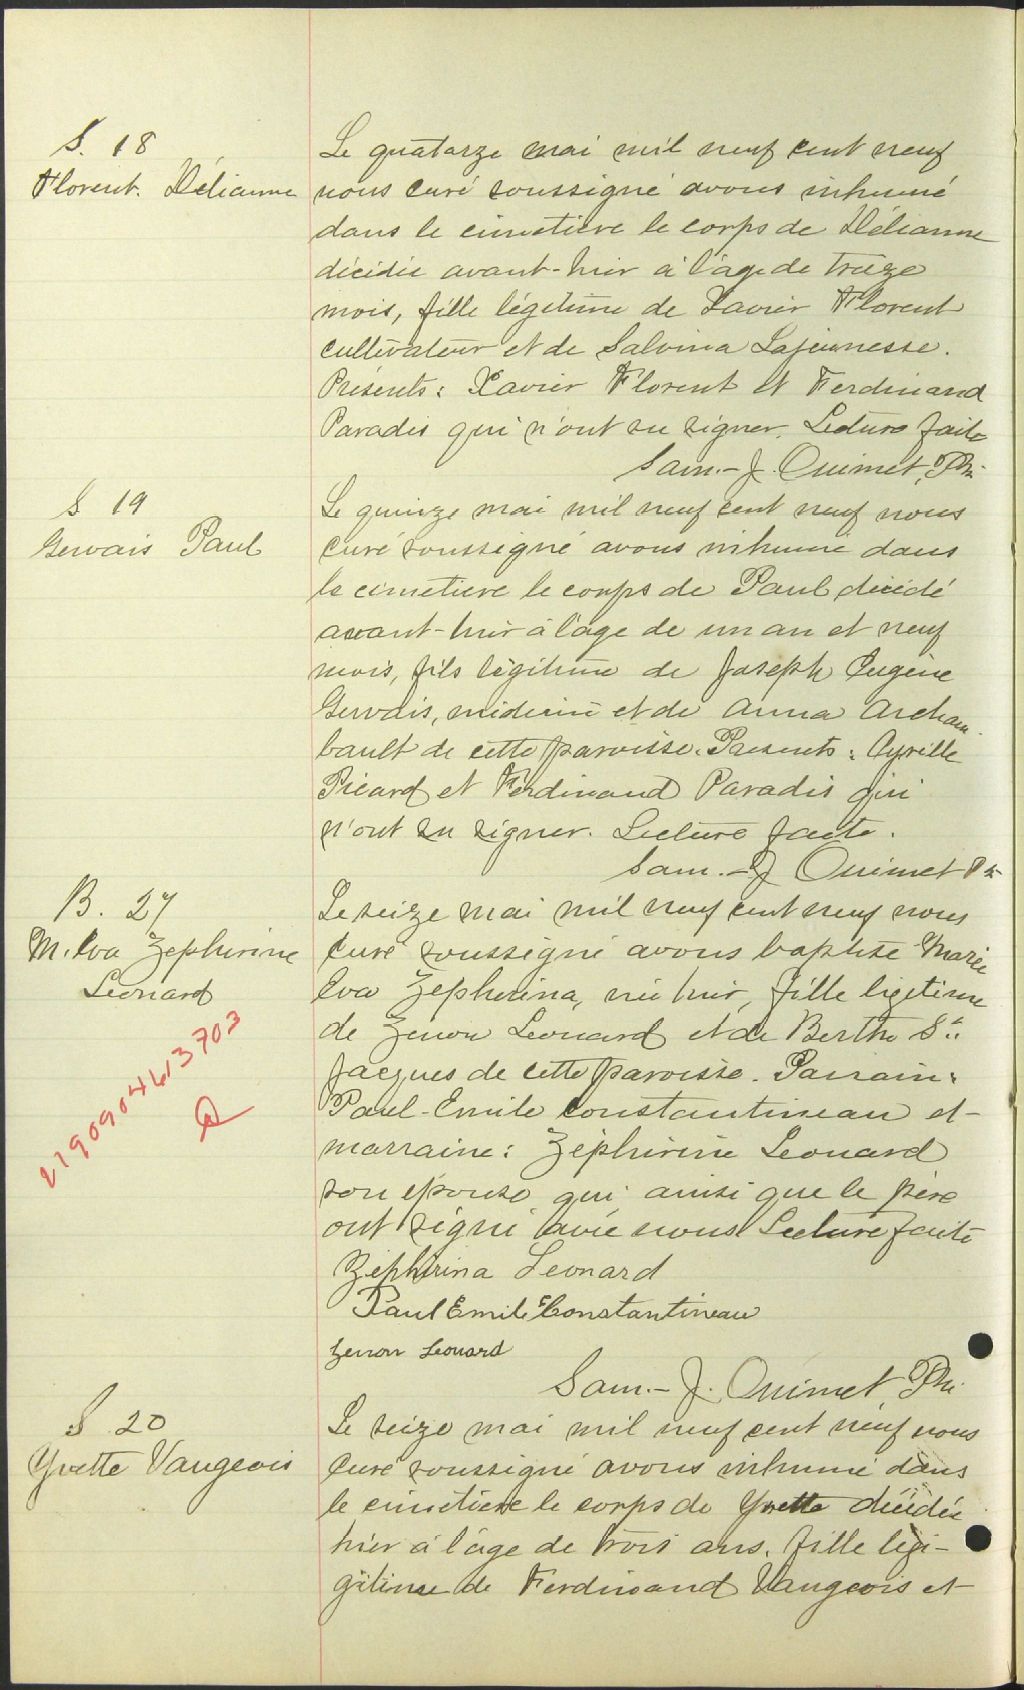 S. 18
Florent. Délianne
Le quatorze mai mil neuf cent neuf
nous curé soussigné avons inhumé
dans le cimetière le corps de Délianne
décédée avant-hier à l'âge de treize
mois, fille légitime de Xavier Florent
cultivateur et de Salvina Lajeunesse.
Présents: Xavier Florent et Ferdinand
Paradis qui n'ont su signer. Lecture faite
Sam.- J. Ouimet, Ptre
S 19
Gervais Paul
Le quinze mai mil neuf cent neuf nous
curé soussigné avons inhumé dans
le cimetière le corps de Paul décédé
avant-hier à l'âge de un an et neuf
mois, fils légitime de Joseph Eugène
Gervais, médecin et de Anna Archam-
bault de cette paroisse. Présents: Cyrille
Picard et Ferdinand Paradis qui
n'ont su signer. Lecture faite.
Sam.- J Ouimet Ptre
B. 27
M. Eva Zephirine
Leonard
Le seize mai mil neuf cent neuf nous
curé soussigné avons baptisé Marie
Eva Zephirina, née hier, fille légitime
de Zenon Leonard et de Berthe St.
Jacques de cette paroisse. Parrain:
Paul-Emile Constantineau et
marraine: Zéphirine Leonard
son épouse qui ainsi que le père
ont signé avec nous Lecture faite
Zéphirina Leonard
Paul Emile Constantineau
Zenon Leonard
Sam.- J. Ouimet, Ptre
2190904613703
S 20
Yvette Vaugeois
Le seize mai mil neuf cent neuf nous
curé soussigné avons inhumé dans
le cimetière le corps de Yvette décédée
hier à l'âge de trois ans, fille légi-
gitime de Ferdinand Vaugeois et